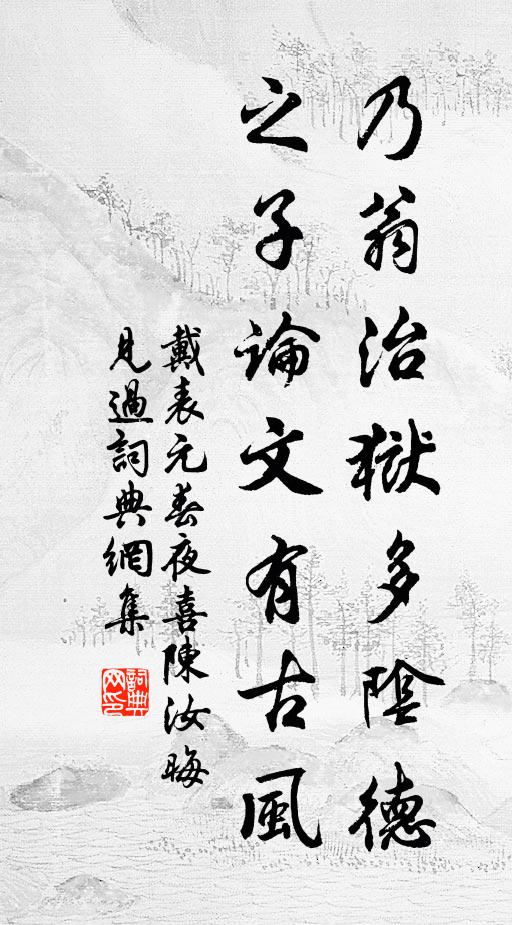 乃翁治獄多陰德
之子論文有古風
戴表元春夜喜陳汝晦
見過詞典網集
詞典
网印